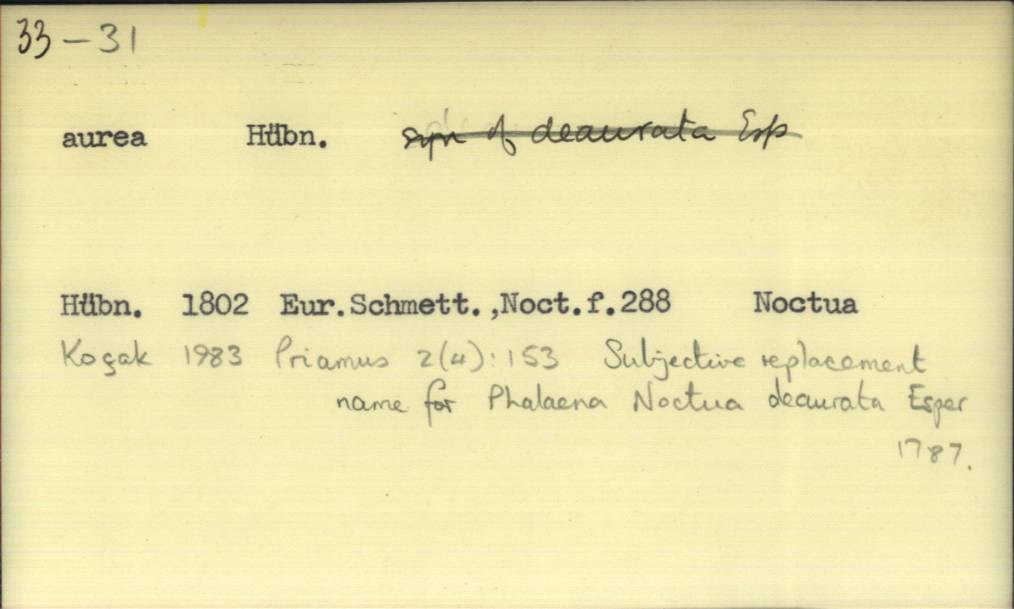 33-31
aurea Hübn. syn of deaurata Esp
Hübn. 1802 Eur.Schmett.,Noct.f.288 Noctua
Koçak 1983 Priamus 2(4):153 Subjective replacement
name for Phalaena Noctua deaurata Esper
1787.